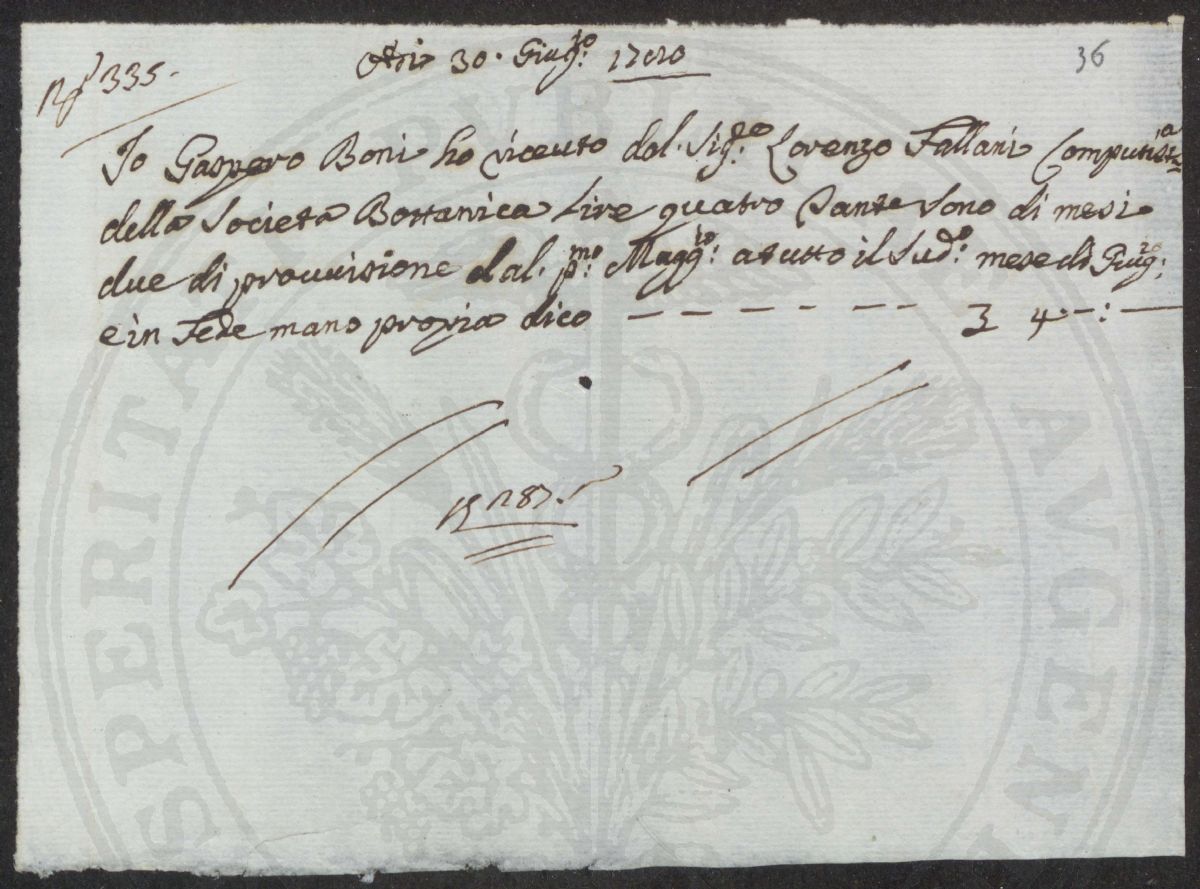 N° 335.
Adi 30. Giugno: 17
36
Io Gaspero Boni ho riceuto dal. Sigro: Lorenzo Fallani Computista
della Società Bottanica Lire quatro Tante sono di mesi
due di prouuisione dal. pmo: Maggio: a tutto il Sudo: mese di Giugno:
e in Fede mano propia dico — — — — — — — £ 4 —:—
PERITA
PVBLI
AVGEN